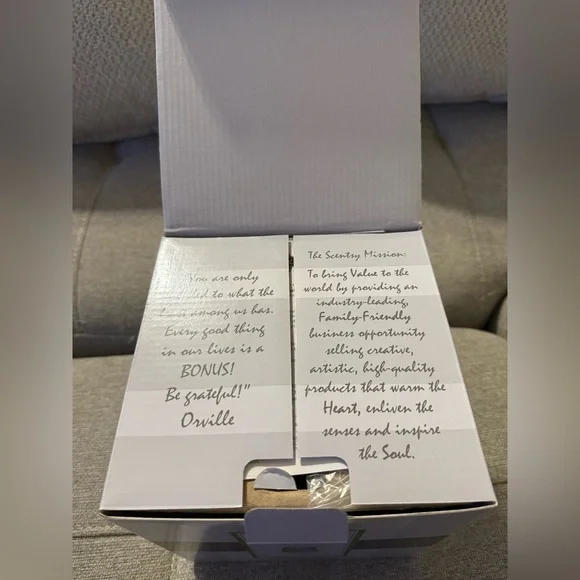 "You are only
entitled to what the
least among us has.
Every good thing
in our lives is a
BONUS!
Be grateful!"
Orville
The Scentsy Mission:
To bring Value to the
world by providing an
industry-leading,
Family-Friendly
business opportunity
selling creative,
artistic, high-quality
products that warm the
Heart, enliven the
senses and inspire
the Soul.